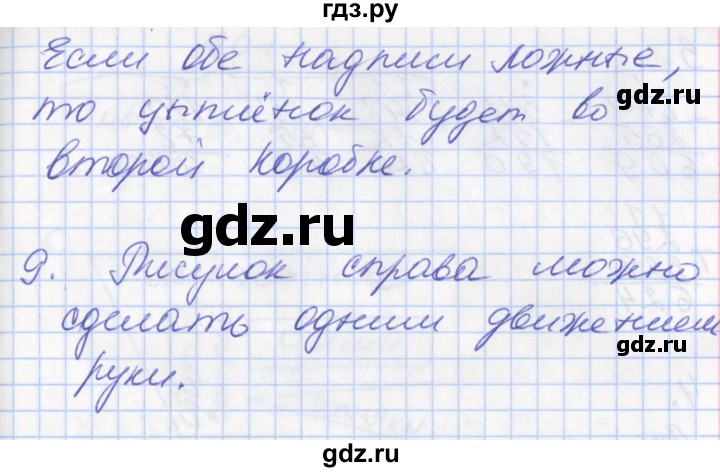 гдз.ру
Если обе надписи ложные,
то цыплёнок будет во
второй коробке.
gdz.ru
gdz.ru
9. Рисунок справа можно
сделать одним движением
руки.
gdz.ru
gdz.ru